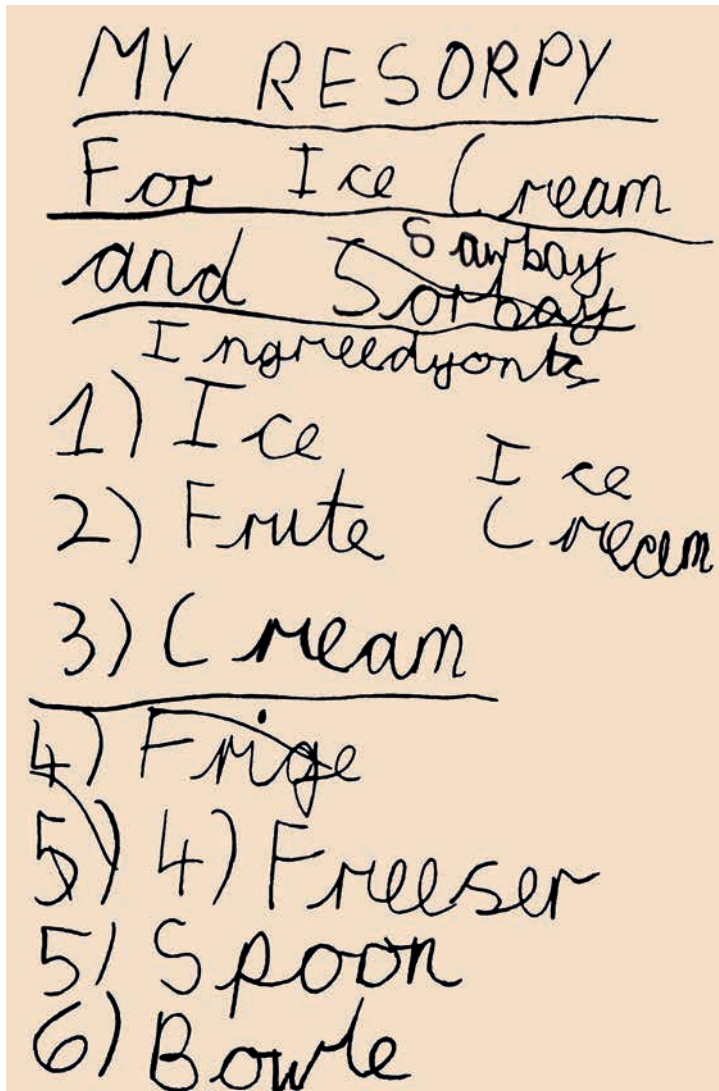 MY RESORPY
For Ice Cream
Sawbay
and Sorbay
Ingreedyonts
1) Ice
Ice
2) Frute
Cream
3) Cream
4) Frige
5) 4) Freeser
5) Spoon
6) Bowle